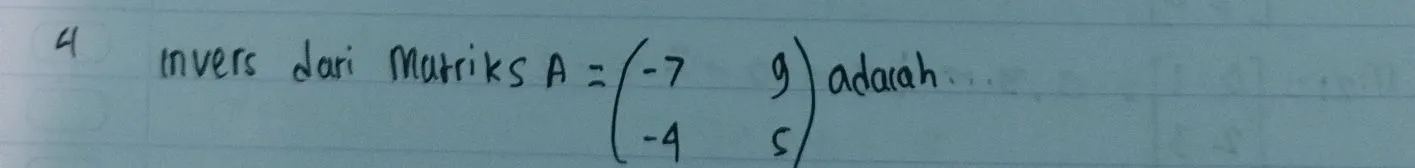 4 invers dari Matriks A = (-7 9) adalah...
(-4 5)